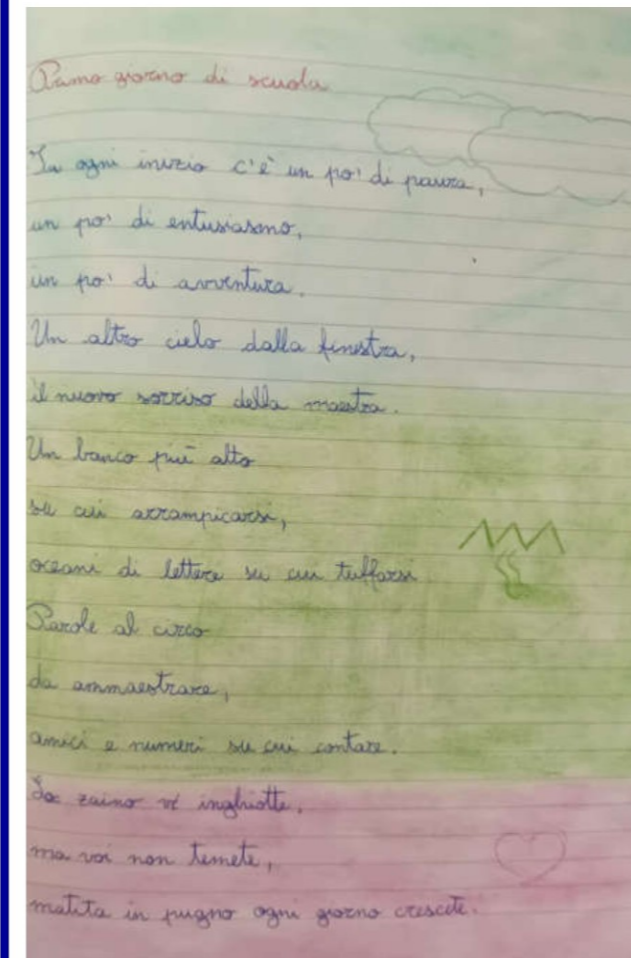 Primo giorno di scuola
In ogni inizio c'è un po' di paura,
un po' di entusiasmo,
un po' di avventura.
Un altro cielo dalla finestra,
il nuovo sorriso della maestra.
Un banco più alto
su cui arrampicarsi,
oceani di lettere su cui tuffarsi
Parole al circo
da ammaestrare,
amici e numeri su cui contare.
Lo zaino vi inghiotte,
ma voi non temete,
matita in pugno ogni giorno crescete.